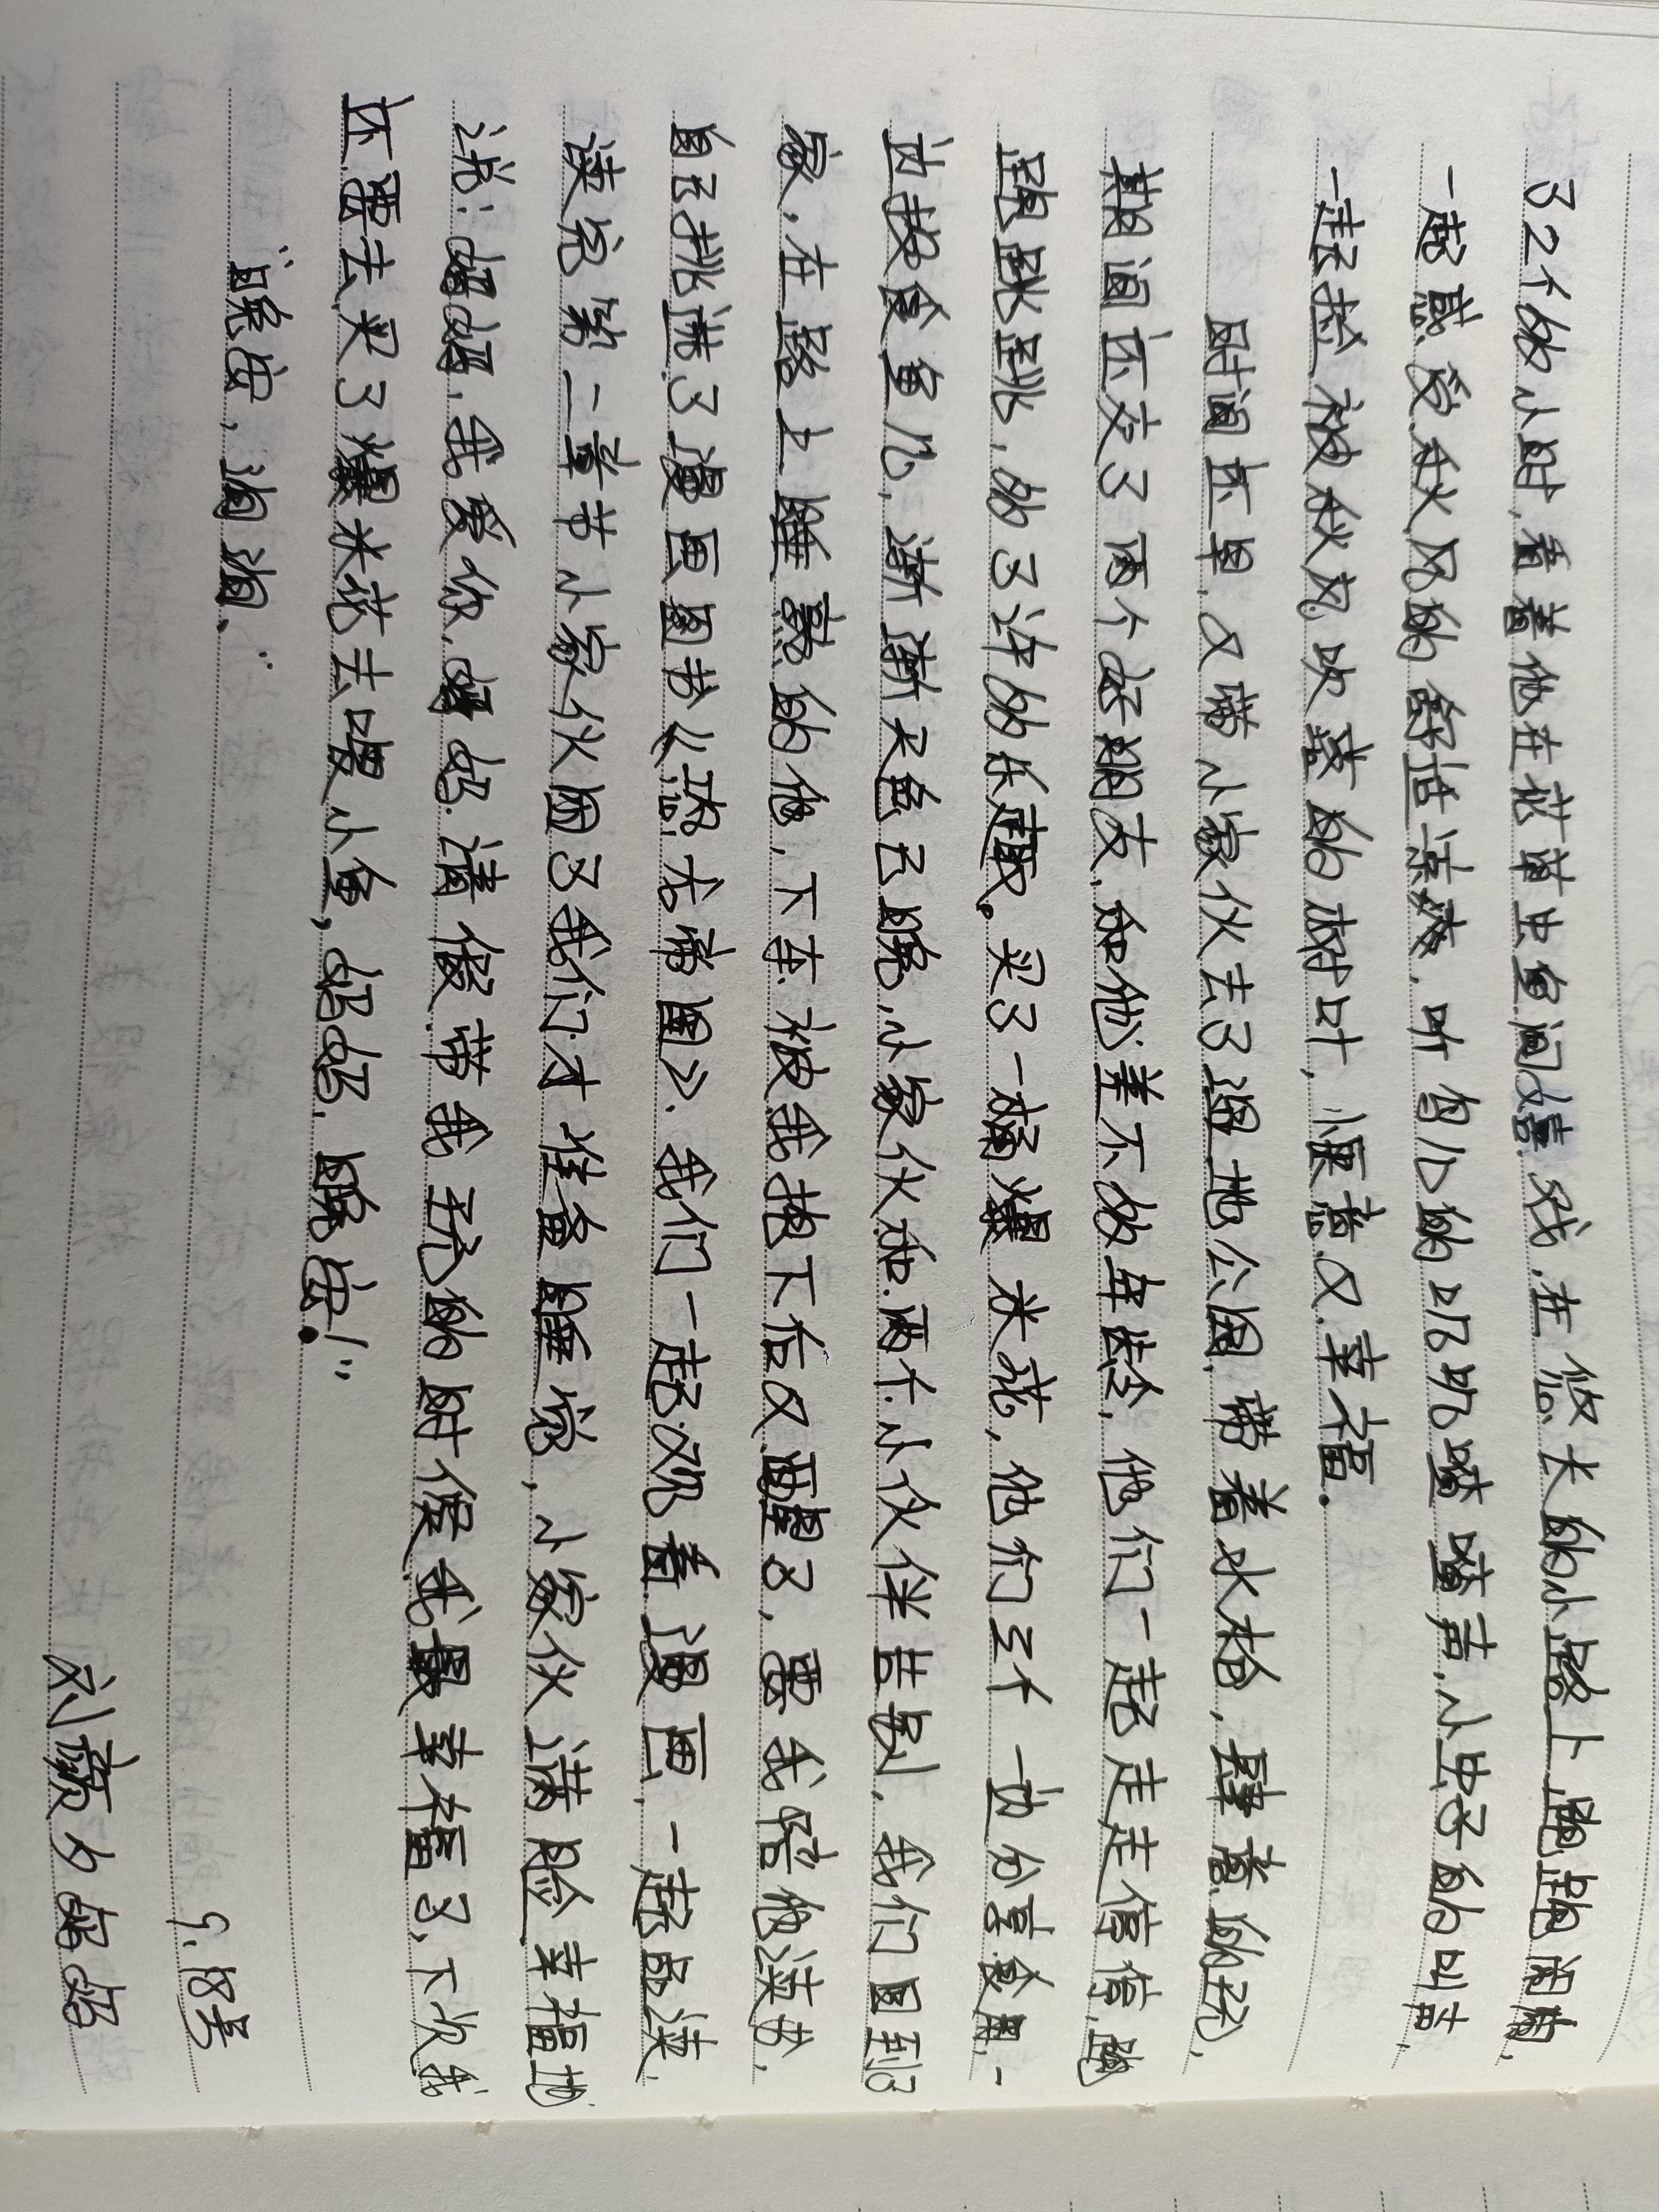 了2个的小时,看着他在花草虫鱼间嬉戏.在悠长的小路上跑跑闹闹,
一起感受秋风的舒适凉爽.听鸟儿的叽叽喳喳声,小虫子的叫声,
一起捡被秋风吹落的树叶,惬意又幸福.
时间还早,又带小家伙去了湿地公园,带着水枪,肆意的玩,
期间还交了两个好朋友,和他差不多的年龄,他们一起走走停停,跑
跑跳跳,的了许的乐趣。买了一桶爆米花,他们三个一边分享食用,一
边投食鱼儿,渐渐天色已晚,小家伙和两个小伙伴告别,我们回到了
家,在路上睡熟的他,下车被我抱下后又醒了,要我陪他读书,
自己挑选了漫画图书《恐龙帝国》.我们一起观看漫画,一起品读,
读完第二章节小家伙困了我们才准备睡觉,小家伙满脸幸福地
说:"妈妈,我爱你,妈妈.请假带我玩的时候我最幸福了,下次我
还要去买了爆米花去喂小鱼,妈妈,晚安!"
"晚安,淘淘."
9.18号